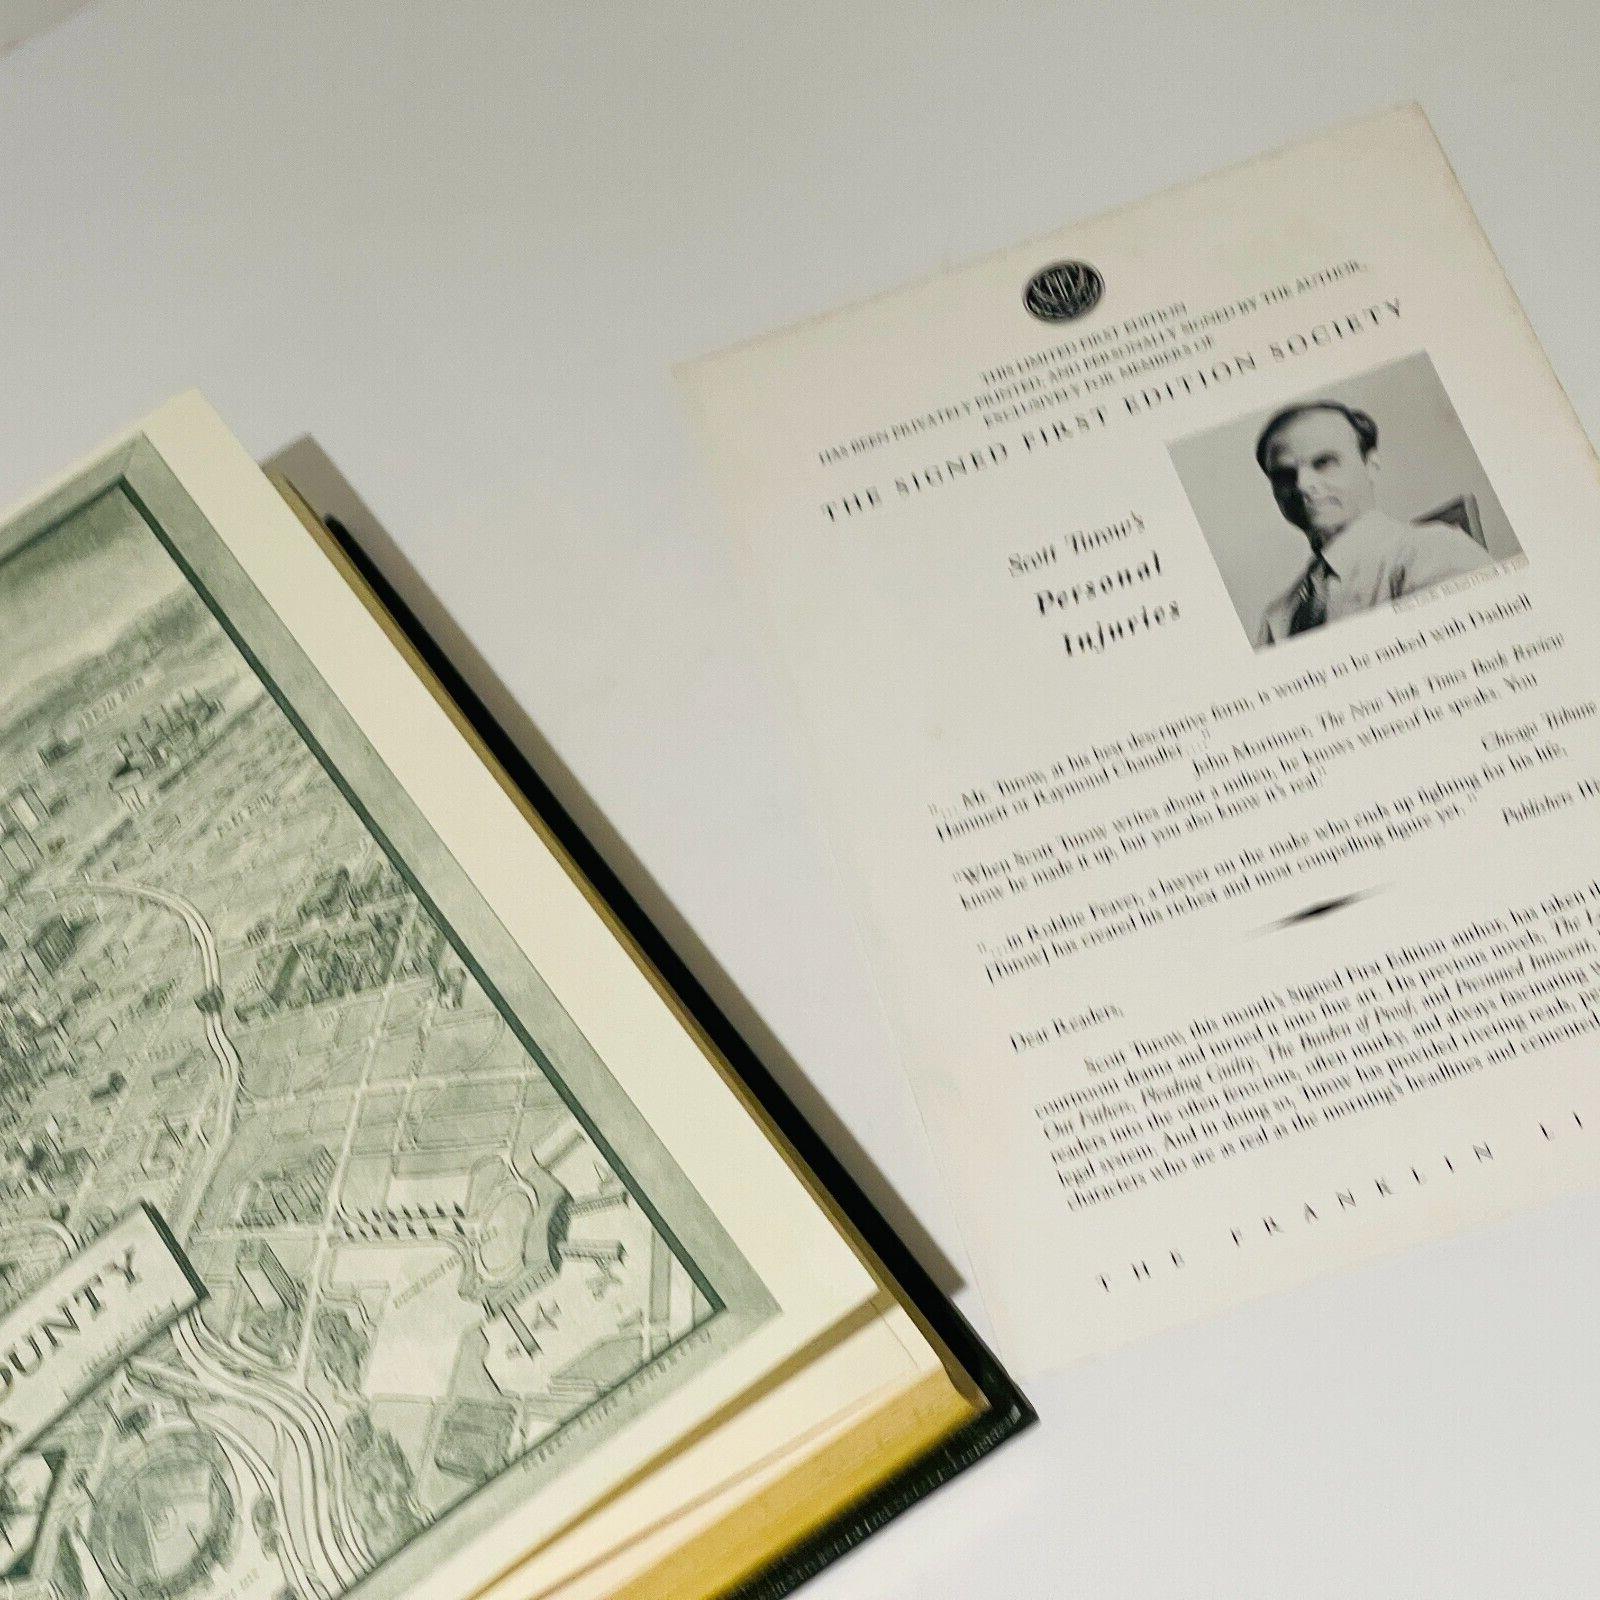 THIS LIMITED FIRST EDITION
HAS BEEN PRIVATELY PRINTED, AND PERSONALLY SIGNED BY THE AUTHOR,
EXCLUSIVELY FOR MEMBERS OF
THE SIGNED FIRST EDITION SOCIETY
Scott Turow's
Personal
Injuries
"... Mr. Turow, at his best descriptive form, is worthy to be ranked with Dashiell
Hammett or Raymond Chandler ..."
John Mortimer, The New York Times Book Review
"When Scott Turow writes about a milieu, he knows whereof he speaks. You
know he made it up, but you also know it's real."
Chicago Tribune
"...in Robbie Feaver, a lawyer on the make who ends up fighting for his life,
[Turow] has created his richest and most compelling figure yet."
Publishers
Dear Readers,
Scott Turow, this month's Signed First Edition author, has taken
courtroom drama and turned it into fine art. His previous novels, The
Our Fathers, Pleading Guilty, The Burden of Proof, and Presumed Innocent,
readers into the often ferocious, often murky, and always fascinating
legal system. And in doing so, Turow has provided riveting reads,
characters who are as real as the morning's headlines and cemented
THE FRANKLIN LI
OUNTY